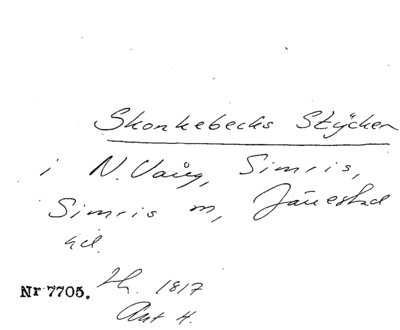 Skonkebecks Stÿcken
i N. Vång, Simris,
Simris m, Järrestad
hd.
Nr 7705. Hh. 1817
Akt 4.